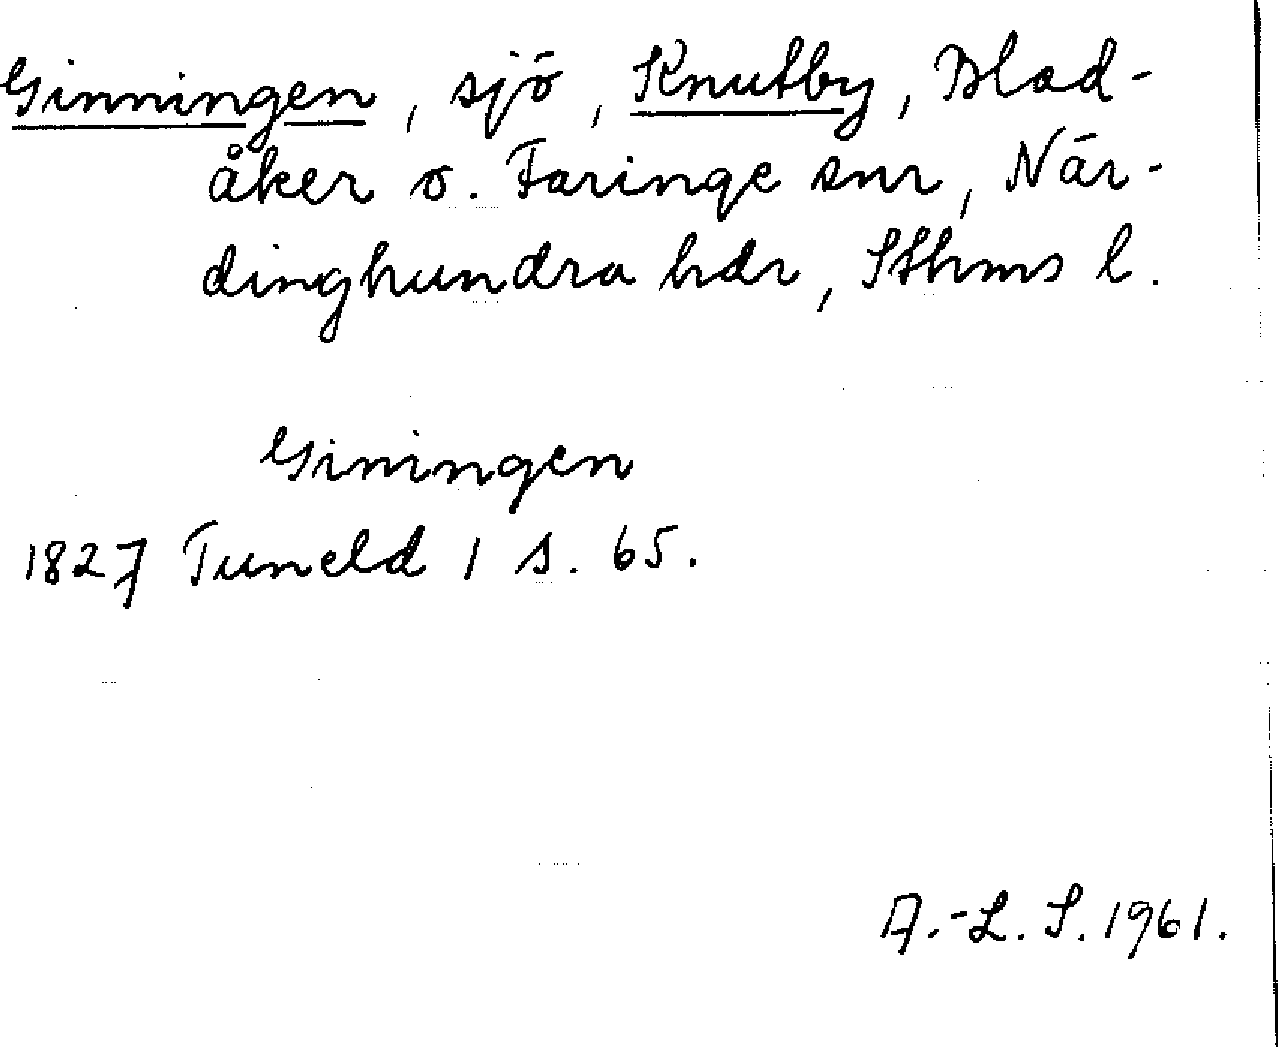 Ginningen, sjö, Knutby, Blad-
åker o. Faringe snr, När-
dinghundra hdr, Sthms l.
Giningen
1827 Tuneld 1 s. 65.
A.-L. S. 1961.